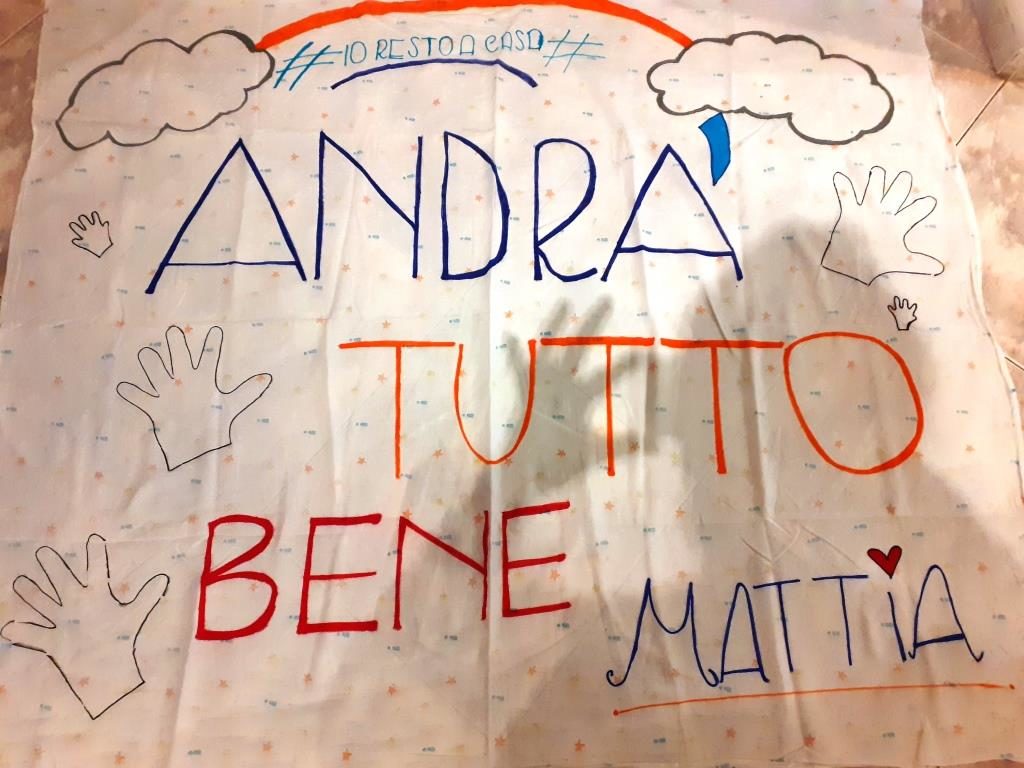 #IO RESTO A CASA#
ANDRA'
TUTTO
BENE
MATTiA